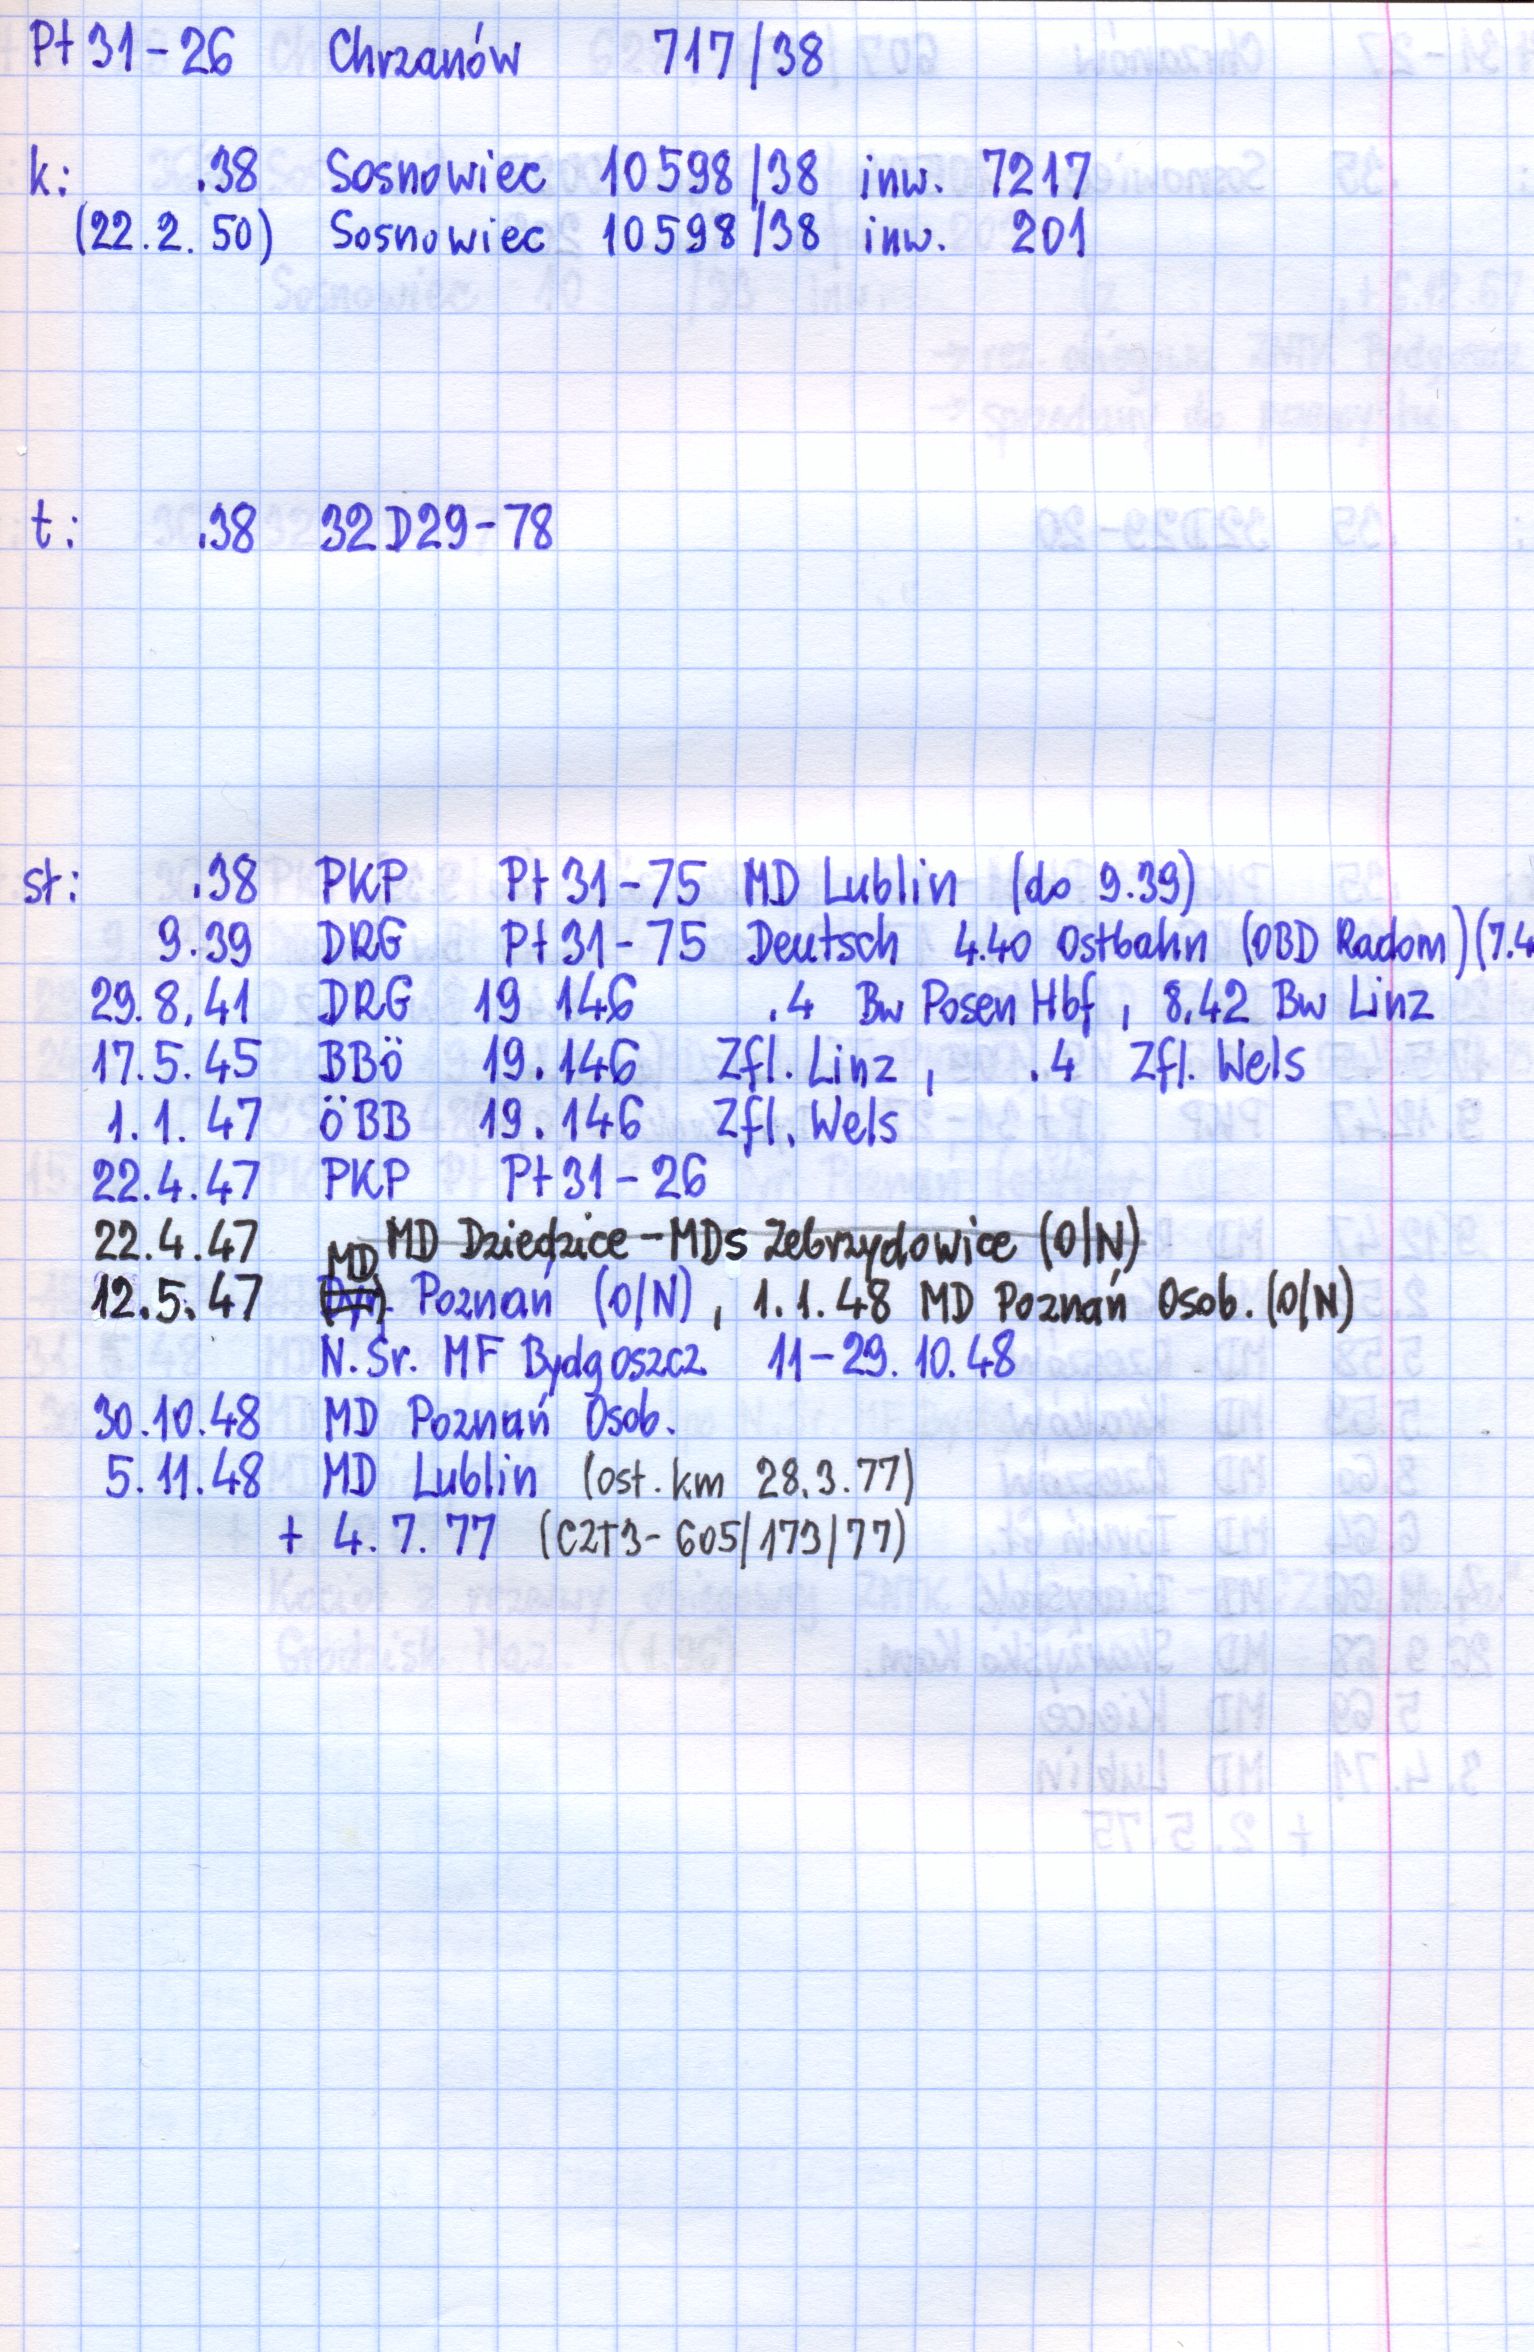 Pt 31-26 Chrzanów 717/38
k: .38 Sosnowiec 10598/38 inw. 7217
(22.2.50) Sosnowiec 10598/38 inw. 201
t: .38 32D29-78
st: .38 PKP Pt 31-75 MD Lublin (do 9.39)
9.39 DRG Pt 31-75 Deutsch 4.40 Ostbahn (OBD Radom) (7.4
29.8.41 DRG 19 146 .4 Bw Posen Hbf, 8.42 Bw Linz
17.5.45 BBö 19.146 Zfl. Linz, .4 Zfl. Wels
1.1.47 ÖBB 19.146 Zfl. Wels
22.4.47 PKP Pt 31-26
22.4.47 MD Dziedzice - MDs Zebrzydowice (O/N)
12.5.47 MD Poznań (O/N), 1.1.48 MD Poznań Osob. (O/N)
N.Śr. MF Bydgoszcz 11-29.10.48
30.10.48 MD Poznań Osob.
5.11.48 MD Lublin (ost. km 28.3.77)
+ 4.7.77 (CZT3-605/173/77)